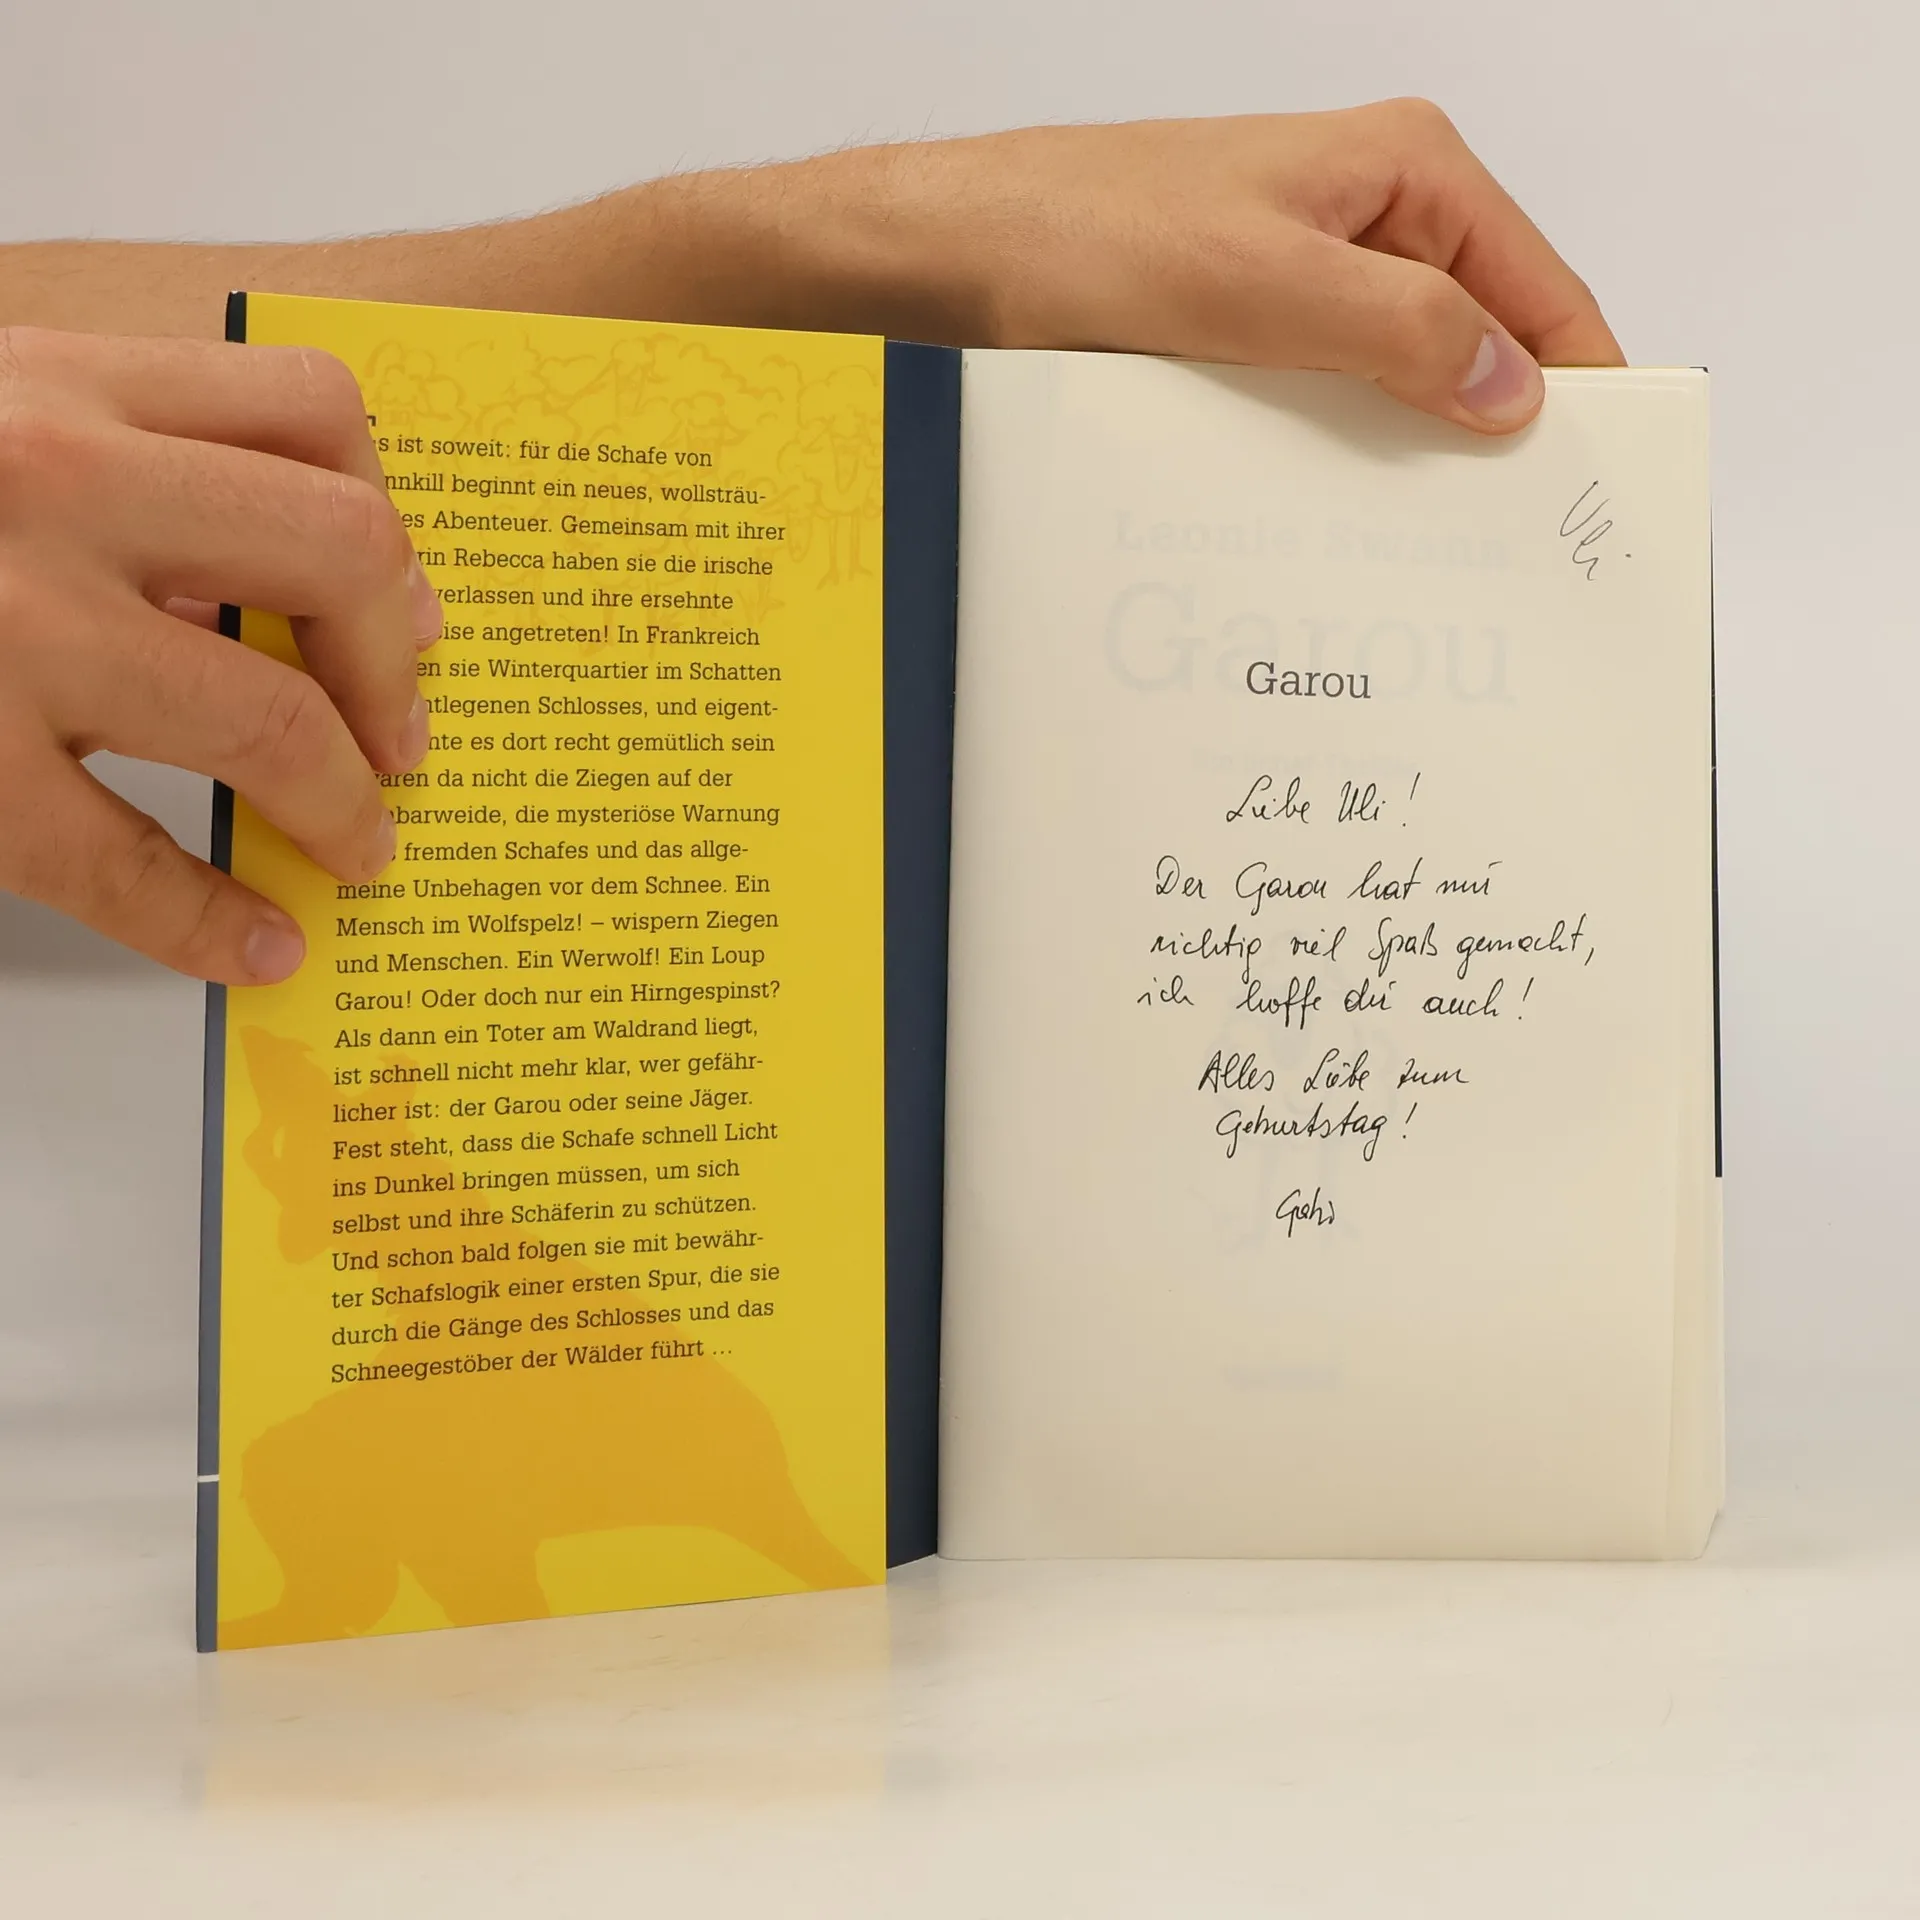 s ist soweit: für die Schafe von
nnkill beginnt ein neues, wollsträu-
es Abenteuer. Gemeinsam mit ihrer
rin Rebecca haben sie die irische
verlassen und ihre ersehnte
ise angetreten! In Frankreich
en sie Winterquartier im Schatten
ntlegenen Schlosses, und eigent-
nte es dort recht gemütlich sein
waren da nicht die Ziegen auf der
barweide, die mysteriöse Warnung
fremden Schafes und das allge-
meine Unbehagen vor dem Schnee. Ein
Mensch im Wolfspelz! – wispern Ziegen
und Menschen. Ein Werwolf! Ein Loup
Garou! Oder doch nur ein Hirngespinst?
Als dann ein Toter am Waldrand liegt,
ist schnell nicht mehr klar, wer gefähr-
licher ist: der Garou oder seine Jäger.
Fest steht, dass die Schafe schnell Licht
ins Dunkel bringen müssen, um sich
selbst und ihre Schäferin zu schützen.
Und schon bald folgen sie mit bewähr-
ter Schafslogik einer ersten Spur, die sie
durch die Gänge des Schlosses und das
Schneegestöber der Wälder führt ...
Uli.
Leonie Swann
Garou
Garou
Liebe Uli!
Der Garou hat mir
richtig viel Spaß gemacht,
ich hoffe dir auch!
Alles Liebe zum
Geburtstag!